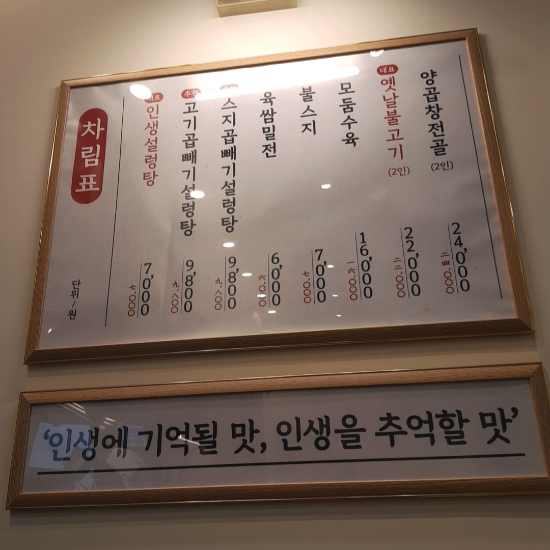 차림표
단위/원
대표
인생설렁탕
7,000
七.○○○
고기곱빼기설렁탕
9,800
九.八○○
스지곱빼기설렁탕
9,800
九.八○○
육쌈밀전
6,000
六.○○○
불스지
7,000
七.○○○
모둠수육
16,000
一六.○○○
대표
옛날불고기
(2인)
22,000
二二.○○○
양곱창전골
(2인)
24,000
二四.○○○
'인생에 기억될 맛, 인생을 추억할 맛'